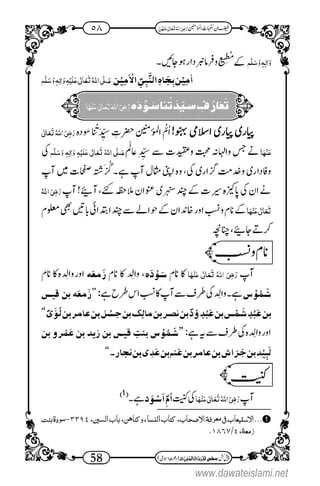 فیضانِ اُمَّہاتُ المؤمنین رَضِیَ اللہُ تَعَالٰی عَنْہُنَّ ٥٨
وَاٰلِہٖ وَسَلَّم کے مطیع و فرمانبردار ہو جائیں۔
اٰمِیْن بِجَاہِ النَّبِیِّ الْاَمِیْن صَلَّی اللہُ تَعَالٰی عَلَیْہِ وَاٰلِہٖ وَسَلَّم
تعارفِ سَیِّدَتُنا سَوْدَہ رَضِیَ اللہُ تَعَالٰی عَنْہَا
پیاری پیاری اسلامی بہنو! اُمُّ المؤمنین حضرتِ سَیِّدَتُنا سودہ رَضِیَ اللہُ تَعَالٰی
عَنْہَا نے جس والہانہ محبت و عقیدت سے سیِّدِ عالَم صَلَّی اللہُ تَعَالٰی عَلَیْہِ وَاٰلِہٖ وَسَلَّم کی
وفاداری و خدمت گزاری کی، وہ اپنی مثال آپ ہے۔ گزشتہ صفحات میں آپ
نے ان کی پاکیزہ سیرت کے چند سنہری عنوان ملاحظہ کئے، آیئے! آپ رَضِیَ اللہُ
تَعَالٰی عَنْہَا کے نام و نسب اور خاندان کے حوالے سے چند ابتدائی باتیں بھی معلوم
کرتے جائیے، چنانچہ
نام و نسب
آپ رَضِیَ اللہُ تَعَالٰی عَنْہَا کا نام سَوْدَہ، والد کا نام زَمْعَہ اور والدہ کا نام
شَمُوْس ہے۔ والد کی طرف سے آپ کا نسب اس طرح ہے: ”زَمْعَہ بن قیس
بن عَبْدِ شَمْس بن عَبْدِ وُدّ بن نصر بن مالِک بن حِسْل بن عامر بن لُؤَیّ“
اور والدہ کی طرف سے یہ ہے: ”شَمُوْس بنتِ قیس بن زید بن عَمْرو بن
لَبِیْد بن خِرَاش بن عامر بن غَنم بن عَدِی بن نجار۔“
کنیت
آپ رَضِیَ اللہُ تَعَالٰی عَنْہَا کی کنیت اُمِّ اَسْوَد ہے۔(1)
1...الاستیعاب فی معرفۃ الاصحاب، کتاب النساء وکناھن، باب السین، ٣٣٩٤-سودۃ بنت
زمعۃ، ٤/١٨٦٧.
58
www.dawateislami.net